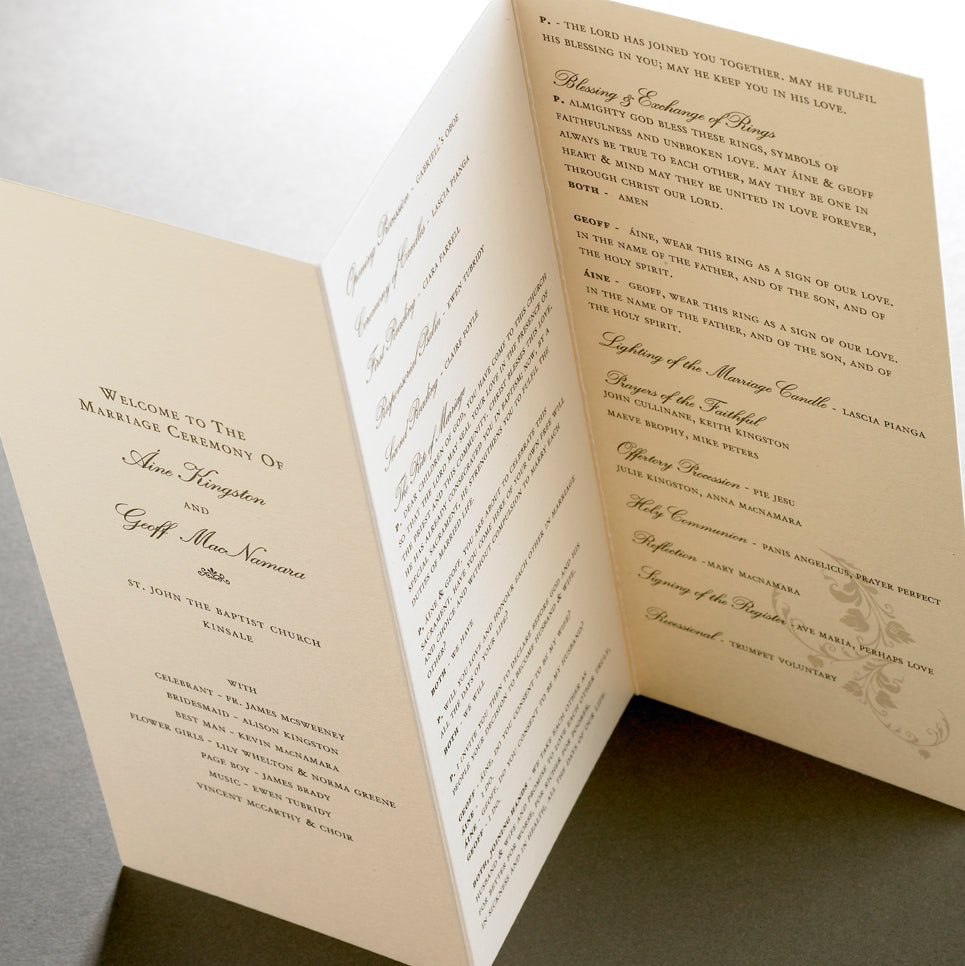 WELCOME TO THE
MARRIAGE CEREMONY OF
Áine Kingston
AND
Geoff MacNamara
ST. JOHN THE BAPTIST CHURCH
KINSALE
WITH
CELEBRANT - FR. JAMES MCSWEENEY
BRIDESMAID - ALISON KINGSTON
BEST MAN - KEVIN MACNAMARA
FLOWER GIRLS - LILY WHELTON & NORMA GREENE
PAGE BOY - JAMES BRADY
MUSIC - EWEN TUBRIDY
VINCENT MCCARTHY & CHOIR
Opening Procession - GABRIELL'S OBOE
Ceremony of Candles - LASCIA PIANGA
First Reading - CIARA FARRELL
Responsorial Psalm - EWEN TUBRIDY
Second Reading - CLAIRE FOYLE
The Rite of Marriage
P. DEAR CHILDREN OF GOD, YOU HAVE COME TO THIS CHURCH
SO THAT THE LORD MAY SEAL YOUR LOVE IN THE PRESENCE OF
THE PRIEST AND THIS COMMUNITY. CHRIST BLESSES THIS LOVE.
HE HAS ALREADY CONSECRATED YOU IN BAPTISM; NOW, BY
A SECOND SACRAMENT, HE STRENGTHENS YOU TO FULFIL THE
DUTIES OF MARRIED LIFE.
P. ÁINE & GEOFF, YOU ARE ABOUT TO CELEBRATE THIS
SACRAMENT. HAVE YOU COME HERE OF YOUR OWN FREE
CHOICE AND WITHOUT COMPULSION TO MARRY EACH
OTHER?
BOTH - WE HAVE
P. WILL YOU LOVE AND HONOUR EACH OTHER IN MARRIAGE
ALL THE DAYS OF YOUR LIFE?
BOTH - WE WILL
P. I INVITE YOU THEN TO DECLARE BEFORE GOD AND HIS
PEOPLE YOUR DECISION TO BECOME HUSBAND & WIFE.
GEOFF - ÁINE, DO YOU CONSENT TO BE MY WIFE?
ÁINE - I DO.
GEOFF, DO YOU CONSENT TO BE MY HUSBAND?
GEOFF - I DO.
BOTH, JOINING HANDS - WE TAKE EACH OTHER AS
HUSBAND & WIFE AND PROMISE TO LOVE EACH OTHER TRULY,
FOR BETTER FOR WORSE, FOR RICHER FOR POORER,
IN SICKNESS AND IN HEALTH, ALL THE DAYS OF OUR LIFE.
P. - THE LORD HAS JOINED YOU TOGETHER. MAY HE FULFIL
HIS BLESSING IN YOU; MAY HE KEEP YOU IN HIS LOVE.
Blessing & Exchange of Rings
P. ALMIGHTY GOD BLESS THESE RINGS, SYMBOLS OF
FAITHFULNESS AND UNBROKEN LOVE. MAY ÁINE & GEOFF
ALWAYS BE TRUE TO EACH OTHER, MAY THEY BE ONE IN
HEART & MIND MAY THEY BE UNITED IN LOVE FOREVER,
THROUGH CHRIST OUR LORD.
BOTH - AMEN
GEOFF - ÁINE, WEAR THIS RING AS A SIGN OF OUR LOVE.
IN THE NAME OF THE FATHER, AND OF THE SON, AND OF
THE HOLY SPIRIT.
ÁINE - GEOFF, WEAR THIS RING AS A SIGN OF OUR LOVE.
IN THE NAME OF THE FATHER, AND OF THE SON, AND OF
THE HOLY SPIRIT.
Lighting of the Marriage Candle - LASCIA PIANGA
Prayers of the Faithful
JOHN CULLINANE, KEITH KINGSTON
MAEVE BROPHY, MIKE PETERS
Offertory Procession - PIE JESU
JULIE KINGSTON, ANNA MACNAMARA
Holy Communion - PANIS ANGELICUS, PRAYER PERFECT
Reflection - MARY MACNAMARA
Signing of the Register - AVE MARIA, PERHAPS LOVE
Recessional - TRUMPET VOLUNTARY